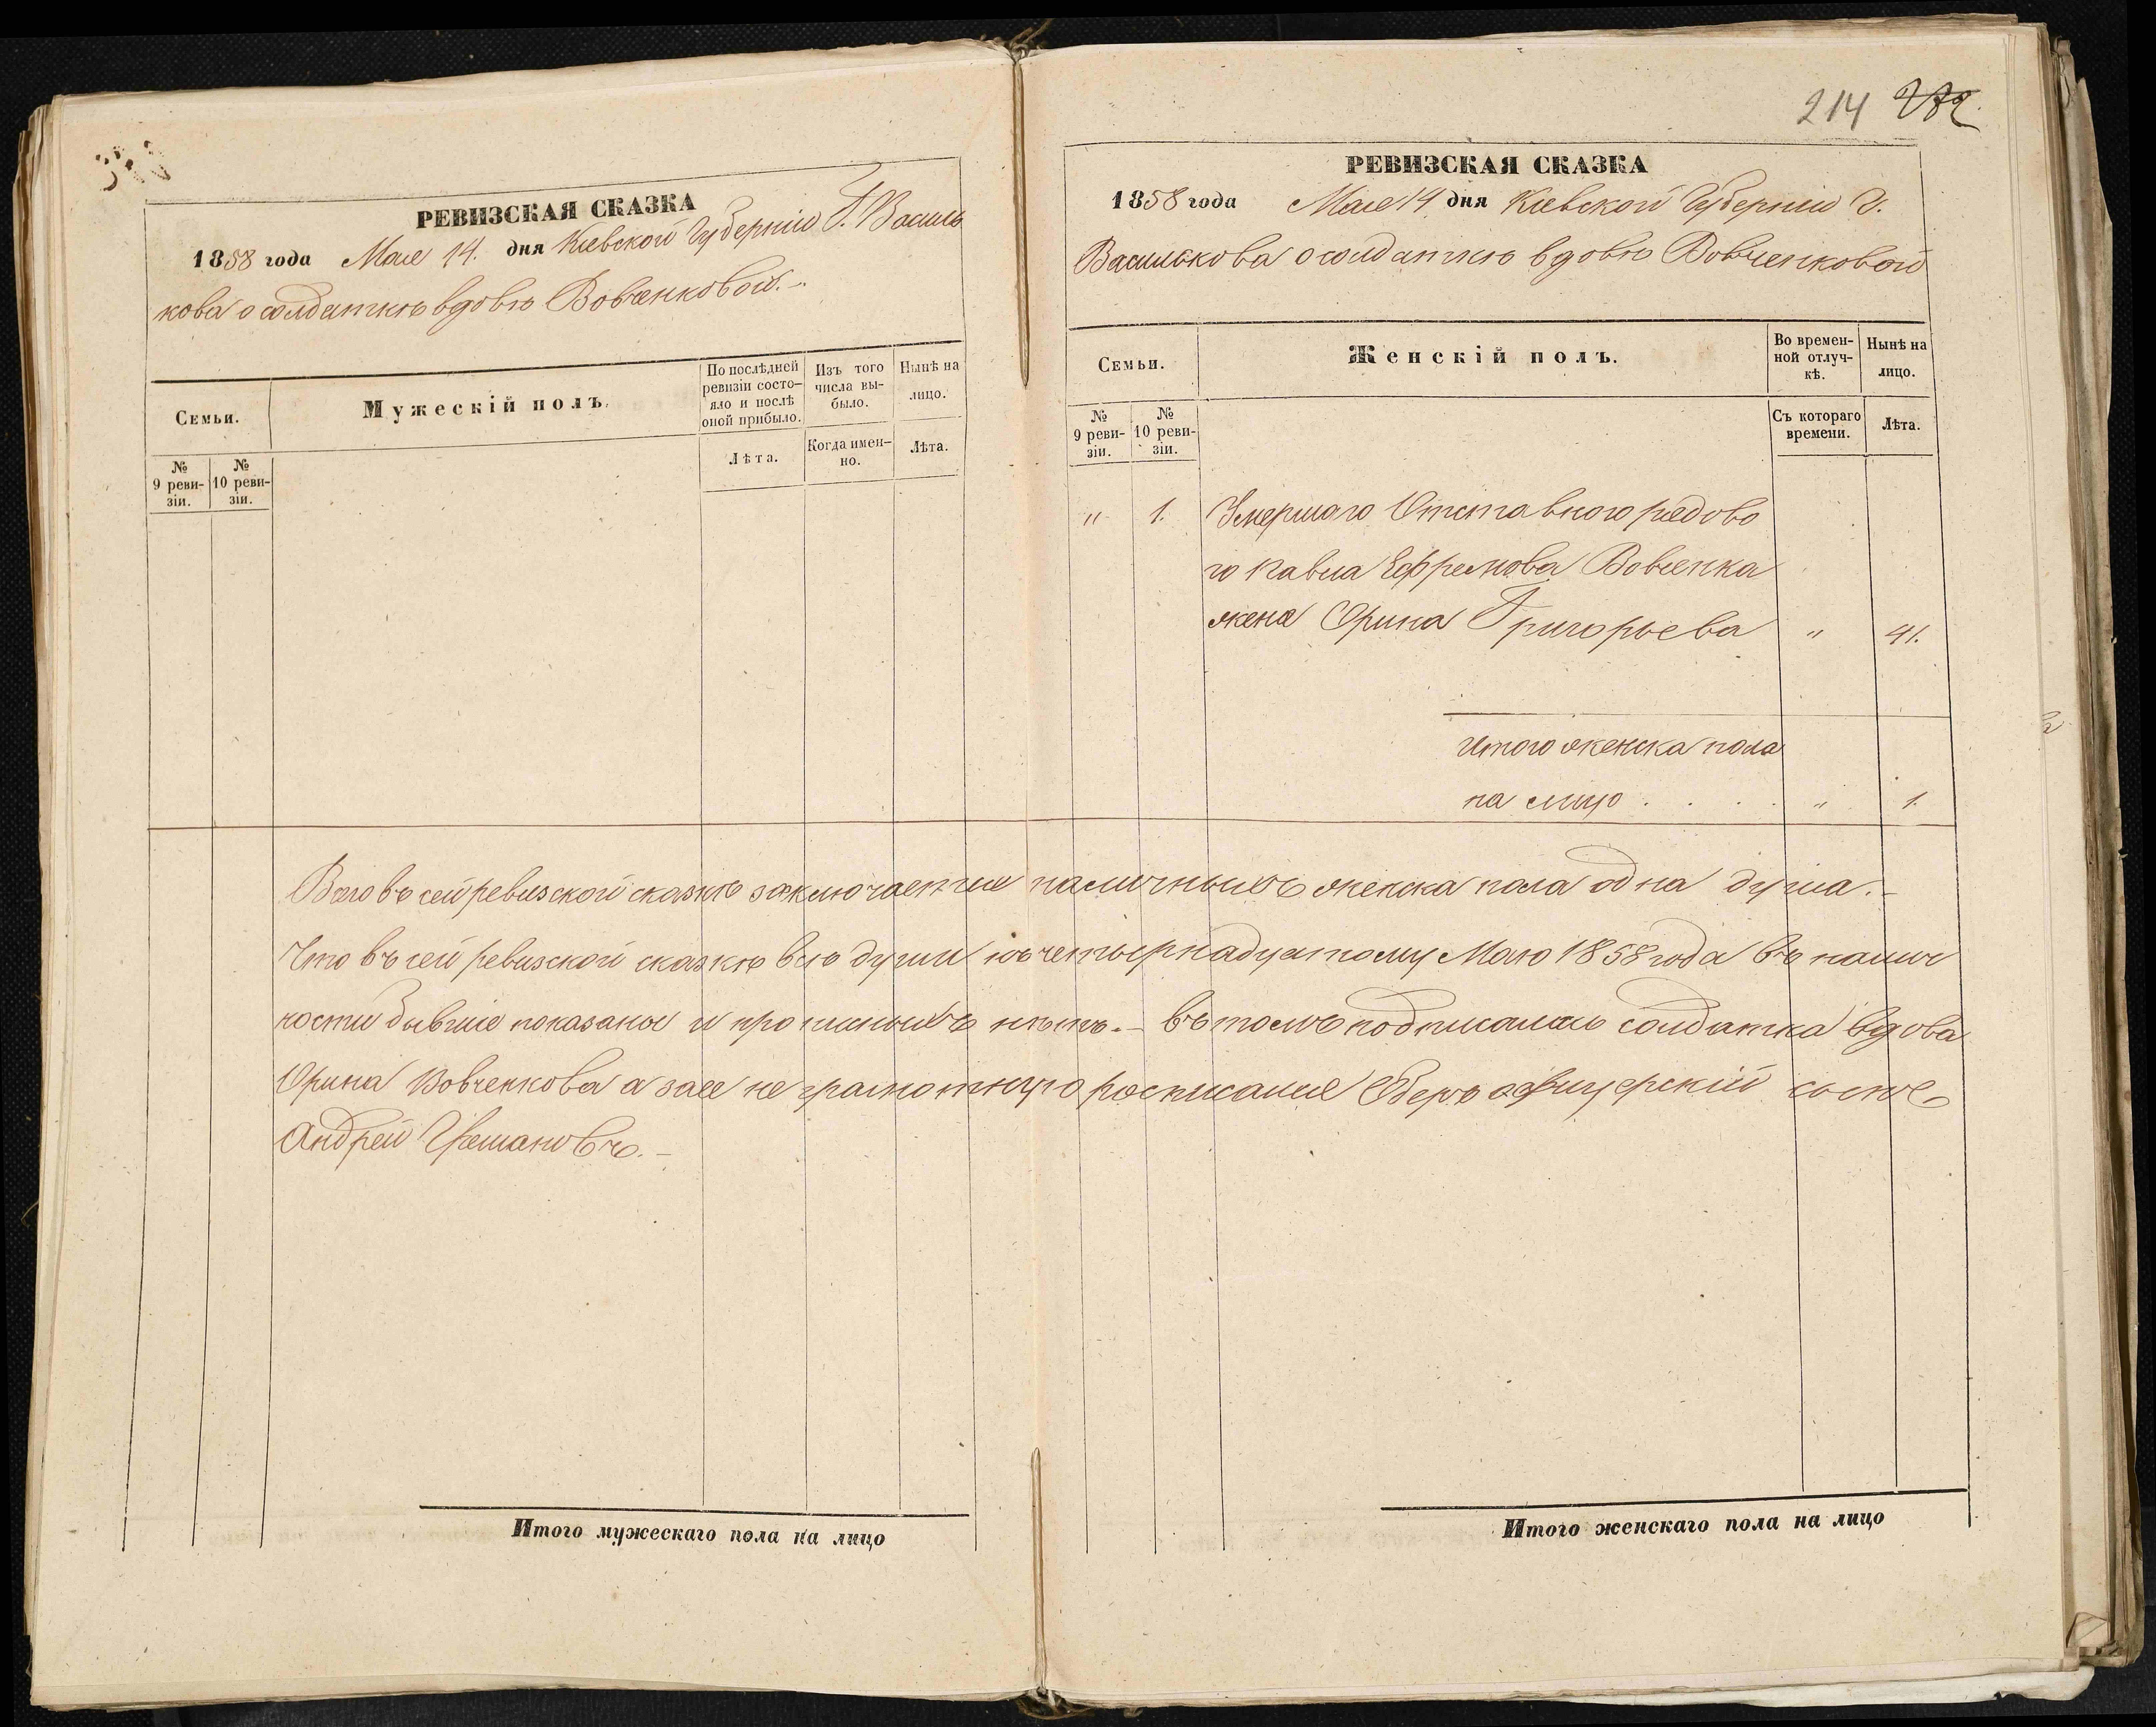 214
РЕВИЗСКАЯ СКАЗКА
1858 года Мая 14. дня Кіевской Губерніи Г. Василь
кова о солдаткѣ вдовѣ Вовченковой.-
Семьи.
Мужескій полъ.
По послѣдней ревизіи состо-яло и послѣ оной прибыло.
Изъ того числа вы-было.
Нынѣ на лицо.
№ 9 реви-зіи.
№ 10 реви-зіи.
Лѣта.
Когда имен-но.
Лѣта.
РЕВИЗСКАЯ СКАЗКА
1858 года Мая 14 дня Кіевской Губерніи Г.
Василькова о солдаткѣ вдовѣ Вовченковой
Семьи.
Женскій полъ.
Во времен-ной отлуч-кѣ.
Нынѣ на лицо.
№ 9 реви-зіи.
№ 10 реви-зіи.
Съ котораго времени.
Лѣта.
" 1. Умершаго Отставного рядово
го Павла Ефремова Вовченка
жена Орина Григорьева " 41.
Итого женска пола
на лицо . . . . " 1.
Всего въ сей ревизской сказкѣ заключается наличныхъ женска пола одна душа.-
Что въ сей ревизской сказкѣ всѣ души къ четырнадцатому Маю 1858 года въ налич
ности бывшіе показаны и прописныхъ нѣтъ.- въ томъ подписалась солдатка вдова
Орина Вовченкова а за ее не грамотную росписался Оберъ офицерскій сынъ
Андрей
Итого мужескаго пола на лицо
Итого женскаго пола на лицо